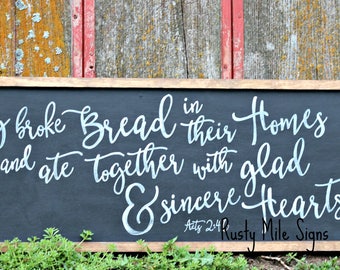 broke Bread in their Homes
and ate together with glad
& sincere Hearts
Acts 2:4
Rusty Mile Signs